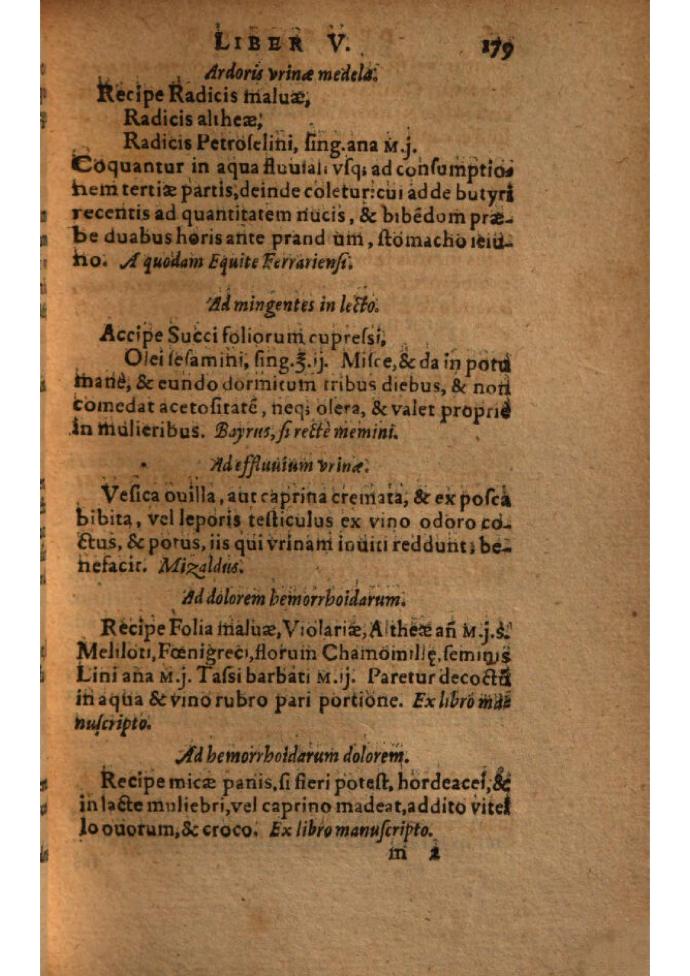 LIBER V. 179
Ardoris vrinæ medela.
Recipe Radicis maluæ,
Radicis altheæ,
Radicis Petroſelini, ſing. ana M.j.
Coquantur in aqua fluuiali vſq; ad conſumptio-
nem tertiæ partis, deinde coletur: cui adde butyri
recentis ad quantitatem nucis, & bibēdum præ-
be duabus horis ante prandium, ſtomacho ieiu-
no. A quodam Equite Ferrarienſi.
Ad mingentes in lecto.
Accipe Succi foliorum cupreſſi,
Olei ſeſamini, ſing. ℥.ij. Miſce, & da in potu
manè, & eundo dormitum tribus diebus, & non
comedat acetoſitatē, neq; olera, & valet propriè
in mulieribus. Bayrus, ſi rectè memini.
Ad effluuium vrinæ.
Veſica ouilla, aut caprina cremata, & ex poſca
bibita, vel leporis teſticulus ex vino odoro co-
ctus, & potus, iis qui vrinam inuiti reddunt, be-
nefacit. Mizaldus.
Ad dolorem hemorrhoidarum.
Recipe Folia maluæ, Violariæ, Altheæ añ M.j.ſ.
Meliloti, Fœnigreci, florum Chamomillę, ſeminis
Lini ana M.j. Taſſi barbati M.ij. Paretur decoctũ
in aqua & vino rubro pari portione. Ex libro ma-
nuſcripto.
Ad hemorrhoidarum dolorem.
Recipe micæ panis, ſi fieri poteſt, hordeacei, &
in lacte muliebri, vel caprino madeat, addito vitel
lo ouorum, & croco. Ex libro manuſcripto.
m 2